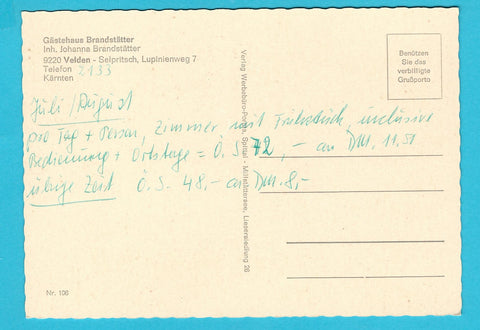 Gästehaus Brandstätter
Inh. Johanna Brandstätter
9220 Velden - Selpritsch, Lupinienweg 7
Telefon 2133
Kärnten
Benützen
Sie das
verbilligte
Grußporto
Juli / August
pro Tag + Person, Zimmer mit Frühstück, inclusive
Bedienung + Ortstaxe = Ö.S. 72,- ca DM. 11.51
übrige Zeit Ö.S. 48,- ca DM. 8,-
Verlag Werbebüro-Porträ, Spittal - Millstättersee, Lieserseidlung 26
Nr. 106